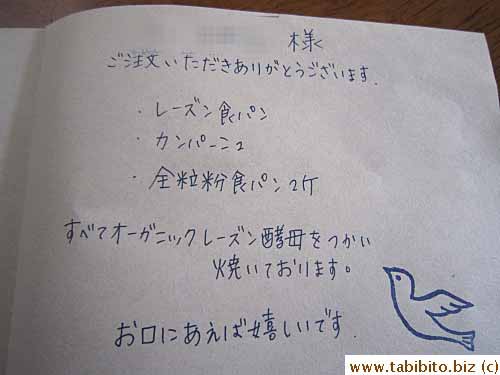 様
ご注文いただきありがとうございます.
・レーズン食パン
・カンパーニュ
・全粒粉食パン2ケ
すべてオーガニックレーズン酵母をつかい
焼いております。
お口にあえば嬉しいです.
www.tabibito.biz (c)